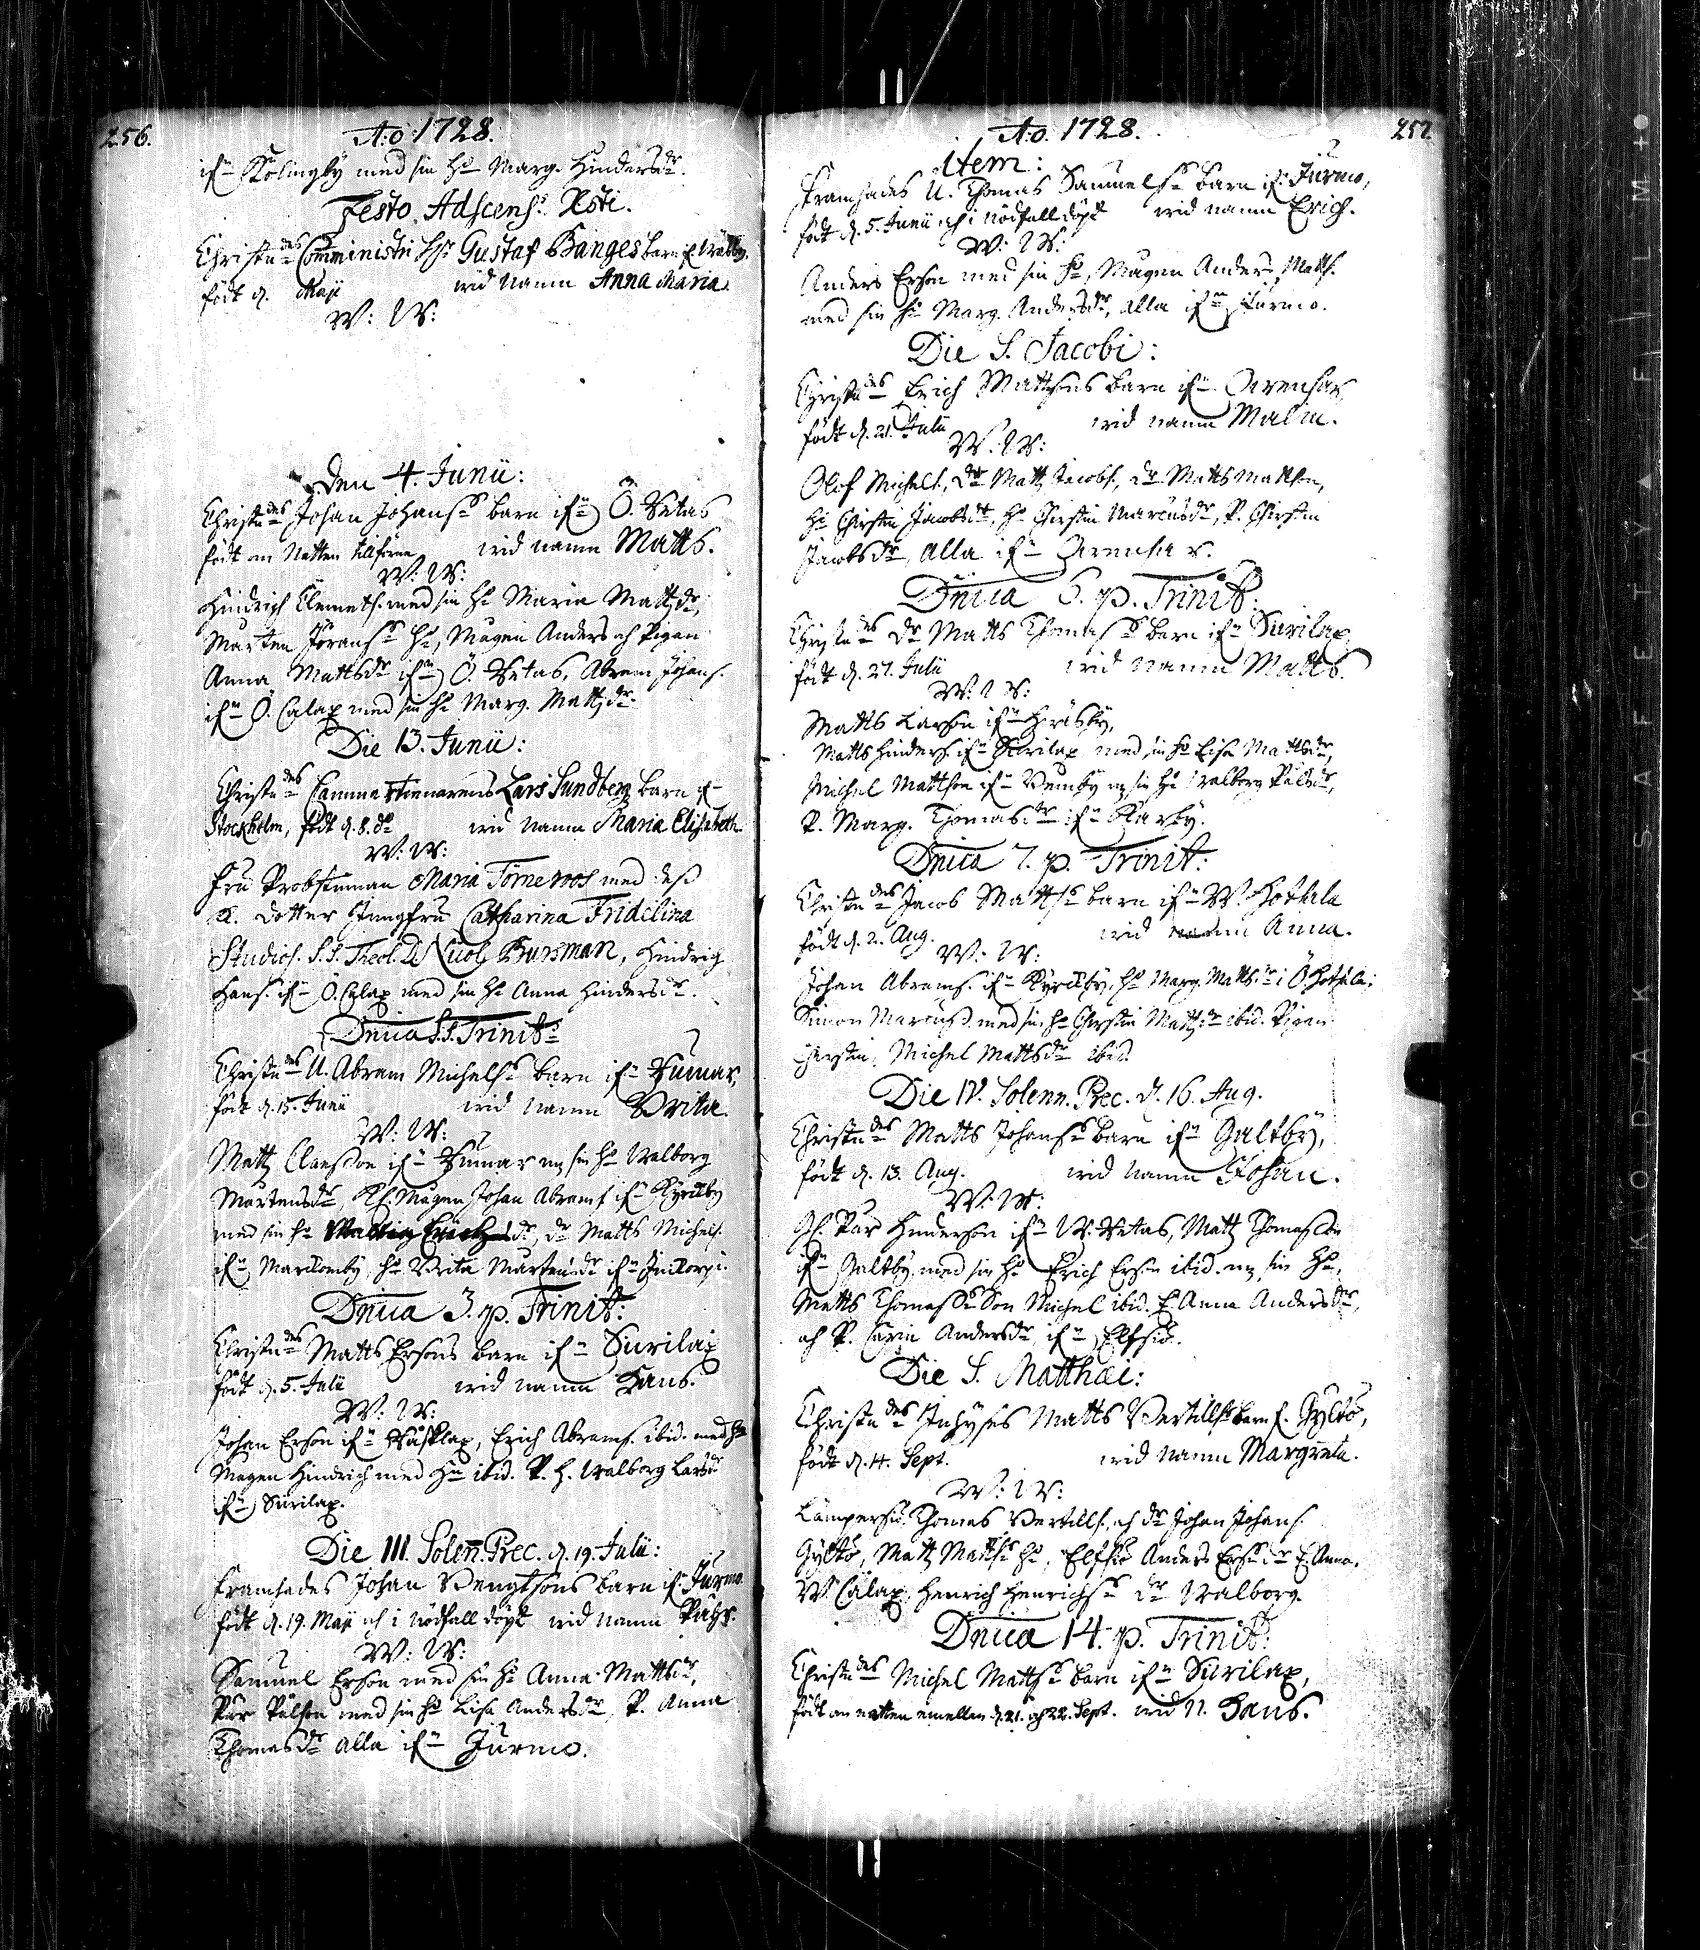 256.
A:o 1728.
if:n Kölingby med sin H:u Marg. Hindersd:r.
Festo Adscens: Xsti.
Christn:des Comministri H:r Gustaf Banges barn f.
födt d. Maji wid namn Anna Maria.
W: W:
den 4. Junii:
Christn:des Johan Johans:s barn if:n Ö. Wetas
födt om Natten tillförne wid namn Matts.
W: W:
Hindrich Clemets. med sin H:u Maria Mattzd:r,
Mårten Jörans:s H:u, Mågen Anders och Pigan
Anna Mattsd:r if:n Ö. Wetas, Abram Johans.
if:n Ö. Calax med sin H:u Marg. Mattzd:r.
Die 13. Junii:
Christn:des Cammartienarens Lars Sundberg barn if:n
Stockholm, födt d. 8. d:o wid namn Maria Elisabeth
W: W:
Fru Probstinnan Maria Törneroos med dess
K. dotter Jungfru Catharina Fridelina
Studios. S.S. Theol. D. Nicol. Bursman, Hindrich
Hans. if:n Ö. Calax med sin H:u Anna Hindersd:r.
Dnica S.S. Trinit:
Christn:des U. Abram Michels:s barn if:n Hummar,
födt d. 15. Junii wid namn Brita.
W: W:
Matz Clausson if:n Hummar m sin H:u Walborg
Mårtensd:r, Mågen Johan Abrams. if:n Kyrckby
med sin H:u d:r, d:r Matts Michels.
if:n Marckomby, H:u Brita Mårtensd:r if:n
Dnica 3. p. Trinit:
Christn:des Matts Ersons barn if:n Surilax
födt d. 5. Julii wid namn Hans.
W: W:
Johan Erson if:n Wäsklax, Erich Abrams. ibid. med H:u
Mågen Hindrich med H:u ibid. P. H. Walborg Larsd:r
if:n Surilax.
Die III. Solen. Prec. d. 19. Julii:
Framhades Johan Bengtsons barn if. Jurmo
födt d. 19. Maji och i nödfall döpt wid namn Påhl.
W: W:
Samuel Erson med sin H:u Anna Mattsd:r,
Pär Pålson med sin H:u Lisa Andersd:r, P. Anna
Thomasd:r alla if:n Jurmo.
257.
A:o 1728.
Item:
Framhades U. Thomas Samuels:s barn if. Jurmo,
födt d. 5. Junii och i nödfall döpt wid namn Erich.
W: W:
Anders Erson med sin H:u, Mågen Anders Matts.
med sin H:u Marg. Andersd:r, alla if:n Jurmo.
Die S. Jacobi:
Christn:des Erich Mattsons barn if:n Arenhar
födt d. 21. Julii wid namn Malin.
W: W:
Olof Michels., d:r Matts Jacobs., d:r Matts Matsson,
H:u Chirstin Jacobsd:r, H:u Chirstin Marcusd:r, P. Chirstin
Jacobsd:r, alla if:n Arenhar.
Dnica 6. p. Trinit:
Christn:des d:r Matts Thomas:s barn if:n Surilax,
födt d. 27. Julii wid namn Matts.
W: W:
Matts Larson if:n
Matts Hinders. if:n Surilax med sin H:u Lisa Mattsd:r,
Michel Mattson if:n m sin H:u Walborg Pålsd:r,
P. Marg. Thomasd:r if:n Karby.
Dnica 7. p. Trinit:
Christn:des Jacob Matts:s barn if:n W. Hothala
födt d. 2. Aug. wid namn Anna.
W: W:
Johan Abrams. if:n Kyrckby, H:u Marg. Mattsd:r i Ö. Hothala:
Simon Marcuss. med sin H:u Chirstin Mattzd:r ibid. Pigan
Chirstin Michel Mattsd:r ibid.
Die IV. Solenn. Prec. d. 16. Aug.
Christn:des Matts Johans:s barn if:n Galtby,
födt d. 13. Aug. wid namn Johan.
W: W:
Pär Hinderson if:n W. Wetas, Matz Thomasson
if:n Galtby, med sin H:u Erich Ers:n ibid. m sin H:u,
Matts Thomass:s Son Michel ibid. E. Anna Andersd:r,
och P. Carin Andersd:r if:n Elfsiö.
Die S. Matthæi:
Christn:des Inhyses Matts Bertills:s barn f. Gyltö,
födt d. 14. Sept. wid namn Margreta.
W: W:
Thomas Bertills., och d:r Johan Johans.
Gyltö, Matz Matts:s H:u, Elfsiö Anders Ers:s d:r E. Anna.
W. Calax, Henrich Henrichs:s d:r Walborg.
Dnica 14. p. Trinit:
Christn:des Michel Matts:s barn if:n Surilax,
födt om natten emellan d. 21. och 22. Sept. wid N. Hans.
KODAK SAFETY FILM +●